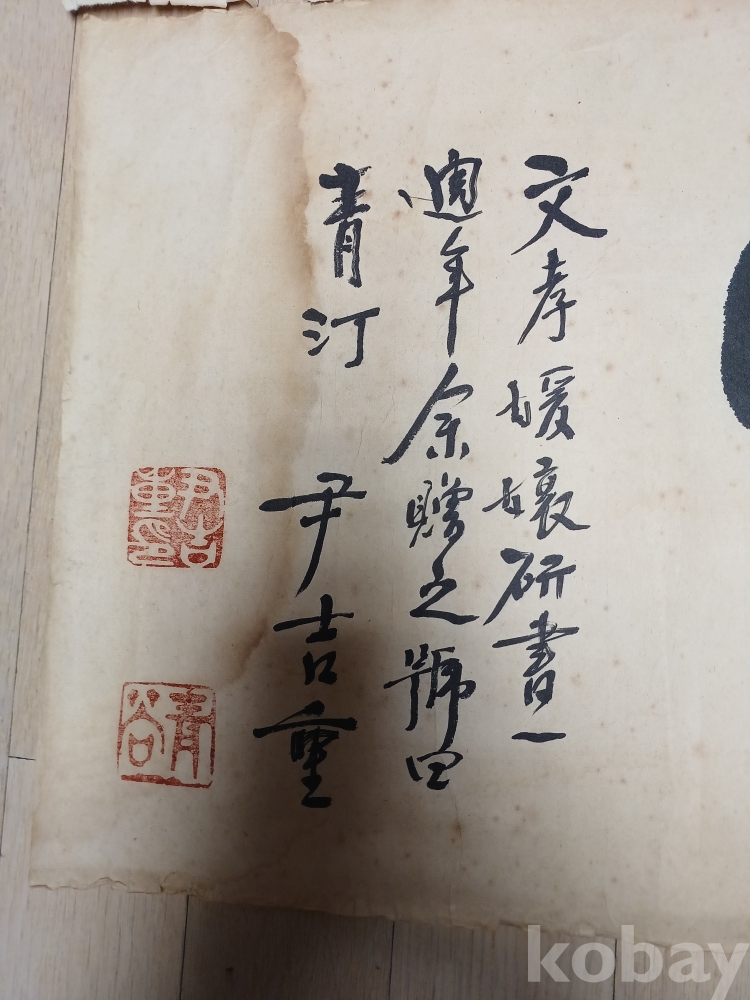 文孝媛孃研書一
週年余贈之號曰
青汀
尹吉重
尹吉重印
青谷
kobay